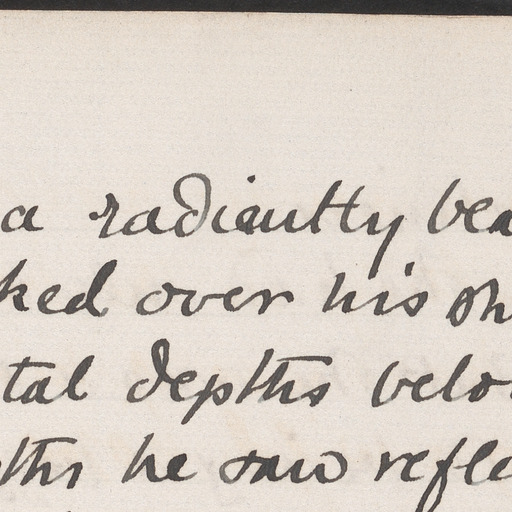 a radiantly bea
ked over his sh
tal depths belo
pths he saw refle